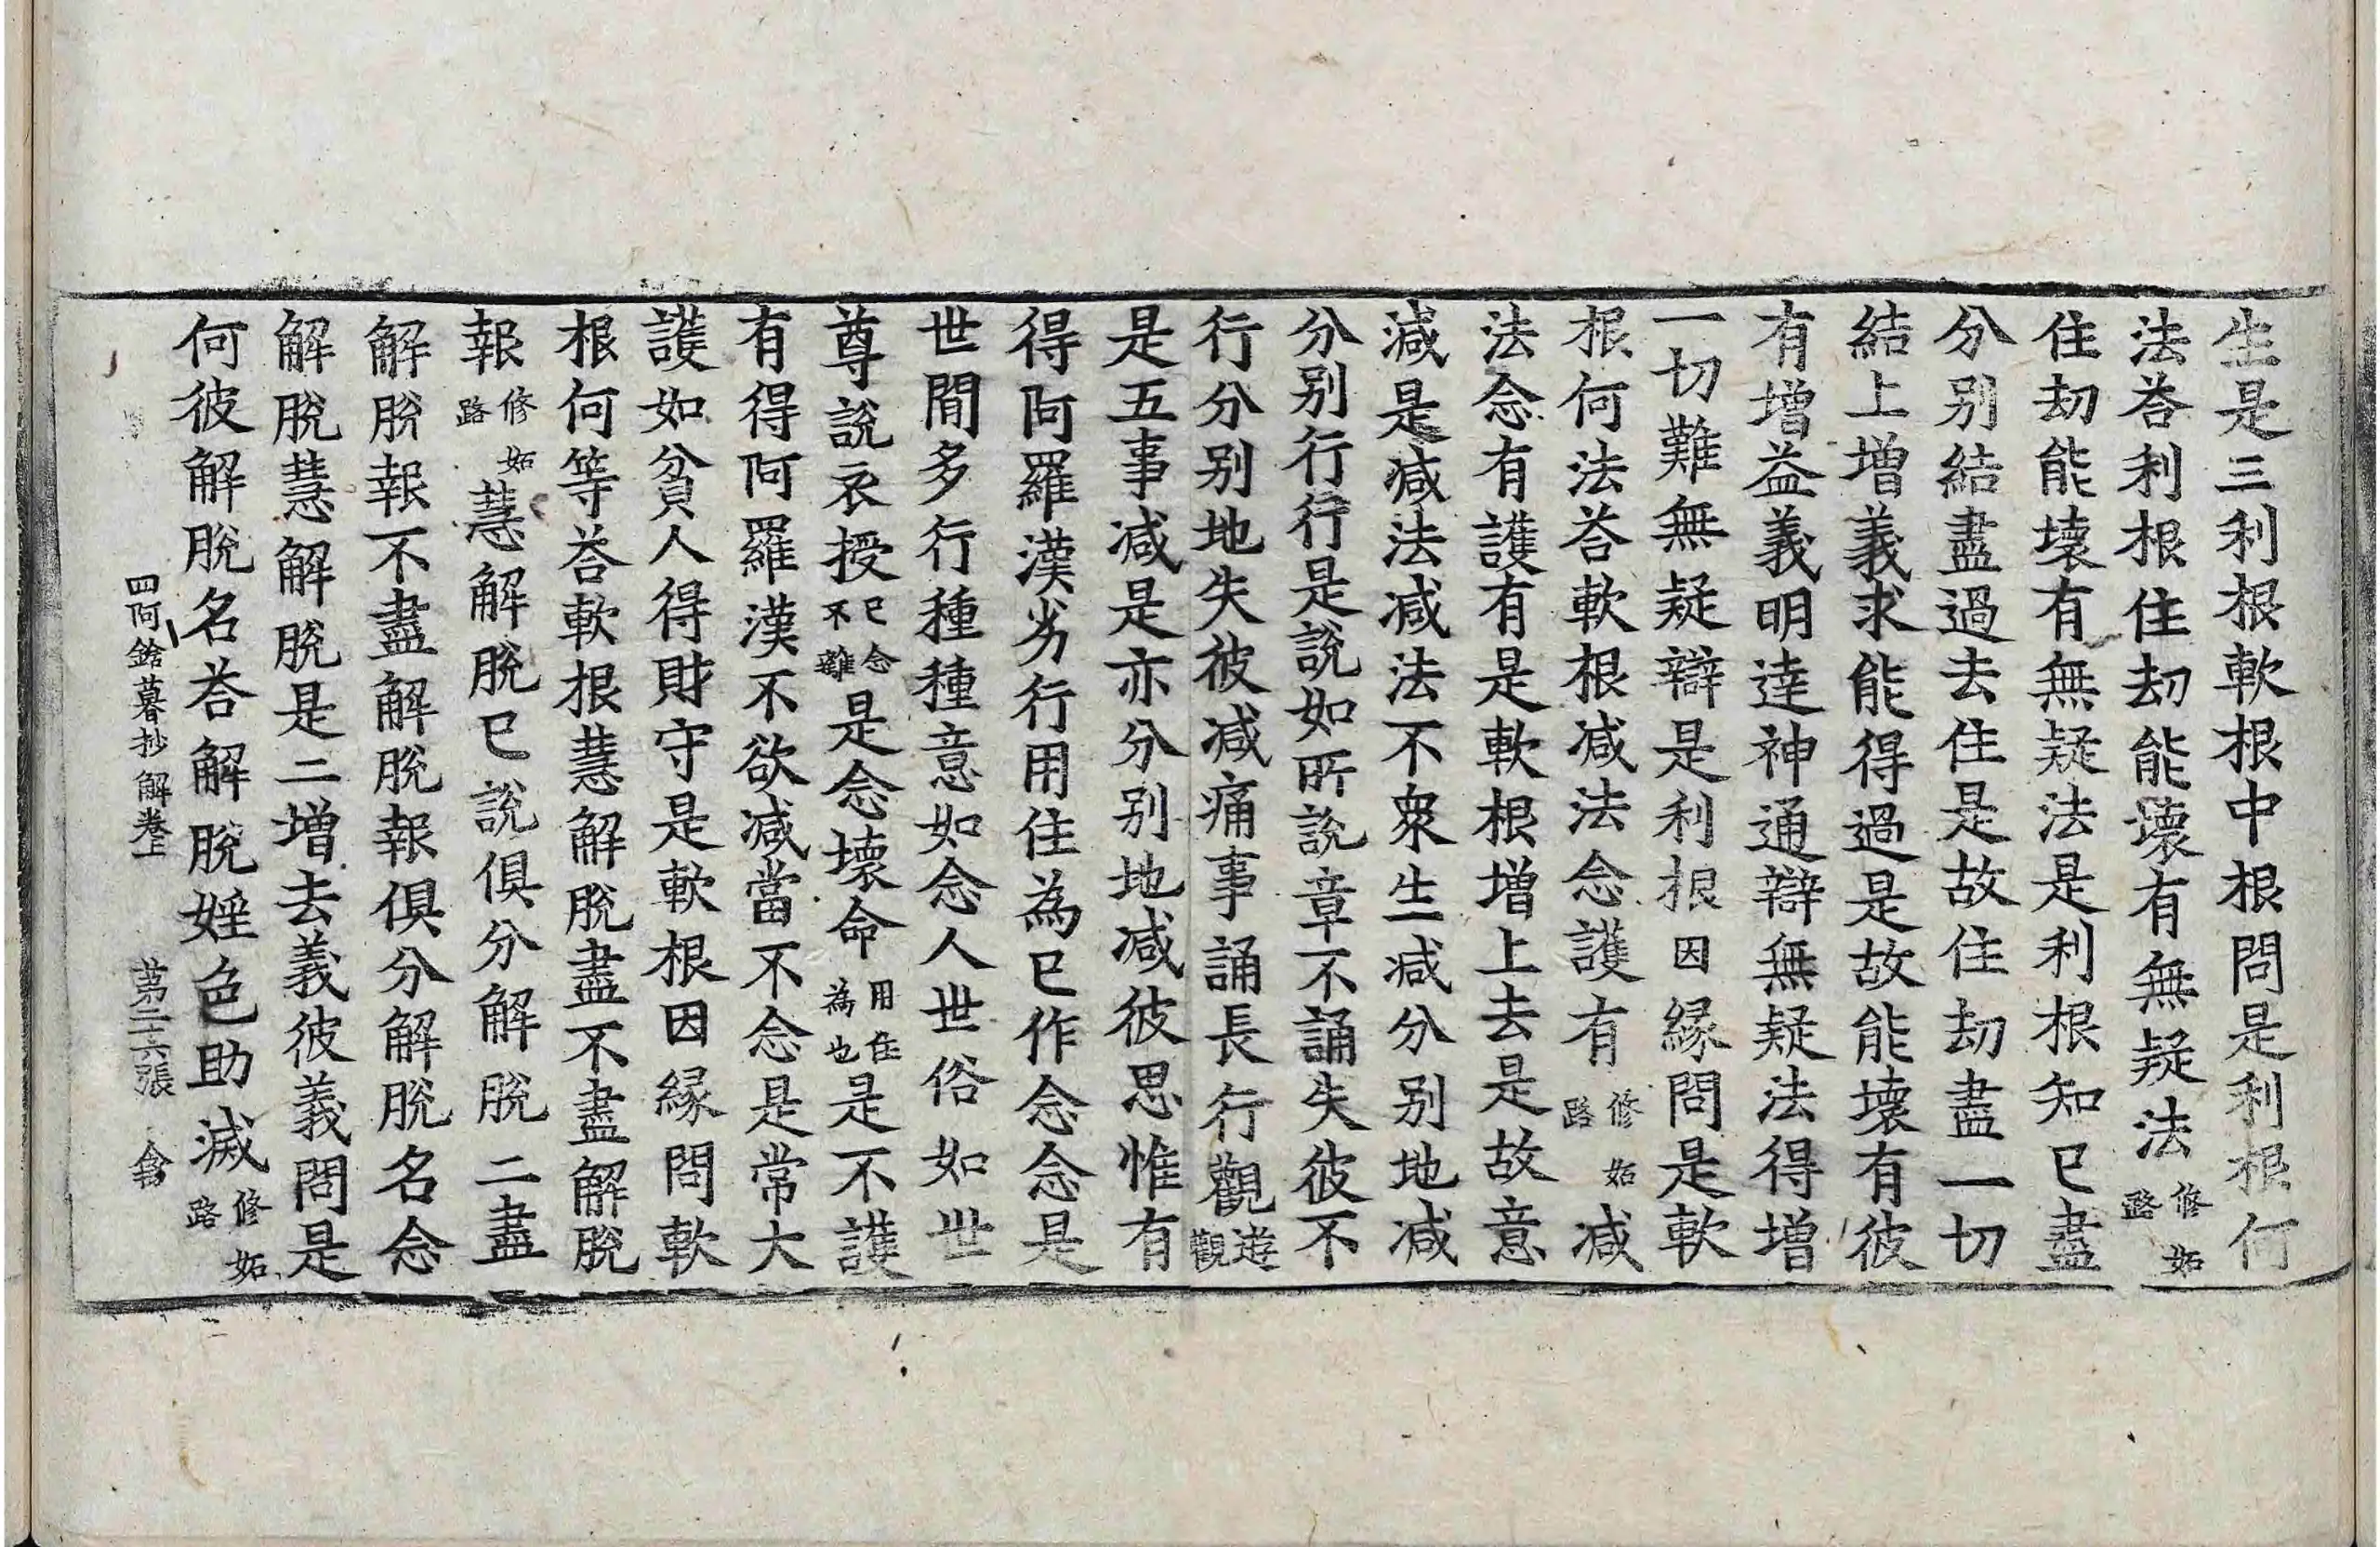 生是三利根軟根中根問是利根何
法荅利根住劫能壞有無疑法修妬路
住劫能壞有無疑法是利根知已盡
分別結盡過去住是故住劫盡一切
結上增義求能得過是故能壞有彼
有增益義明達神通辯無疑法得增
一切難無疑辯是利根因緣問是軟
根何法荅軟根減法念護有修妬路減
法念有護有是軟根增上去是故意
減是減法減法不衆生減分別地減
分別行行是說如所說章不誦失彼不
行分別地失彼減痛事誦長行觀遊觀
是五事減是亦分別地減彼思惟有
得阿羅漢劣行用住為已作念念是
世間多行種種意如念人世俗如世
尊說衣授已念不離是念壞命用住為也是不護
有得阿羅漢不欲減當不念是常大
護如貧人得財守是軟根因緣問軟
根何等荅軟根慧解脫盡不盡解脫
報修妬路慧解脫已說俱分解脫二盡
解脫報不盡解脫報俱分解脫名念
解脫慧解脫是二增去義彼義問是
何彼解脫名荅解脫婬色助滅修妬路
四阿鋡暮抄解卷上　第二十六張